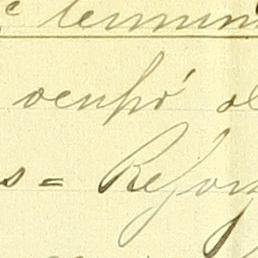 termin
ocupó
s = Refor